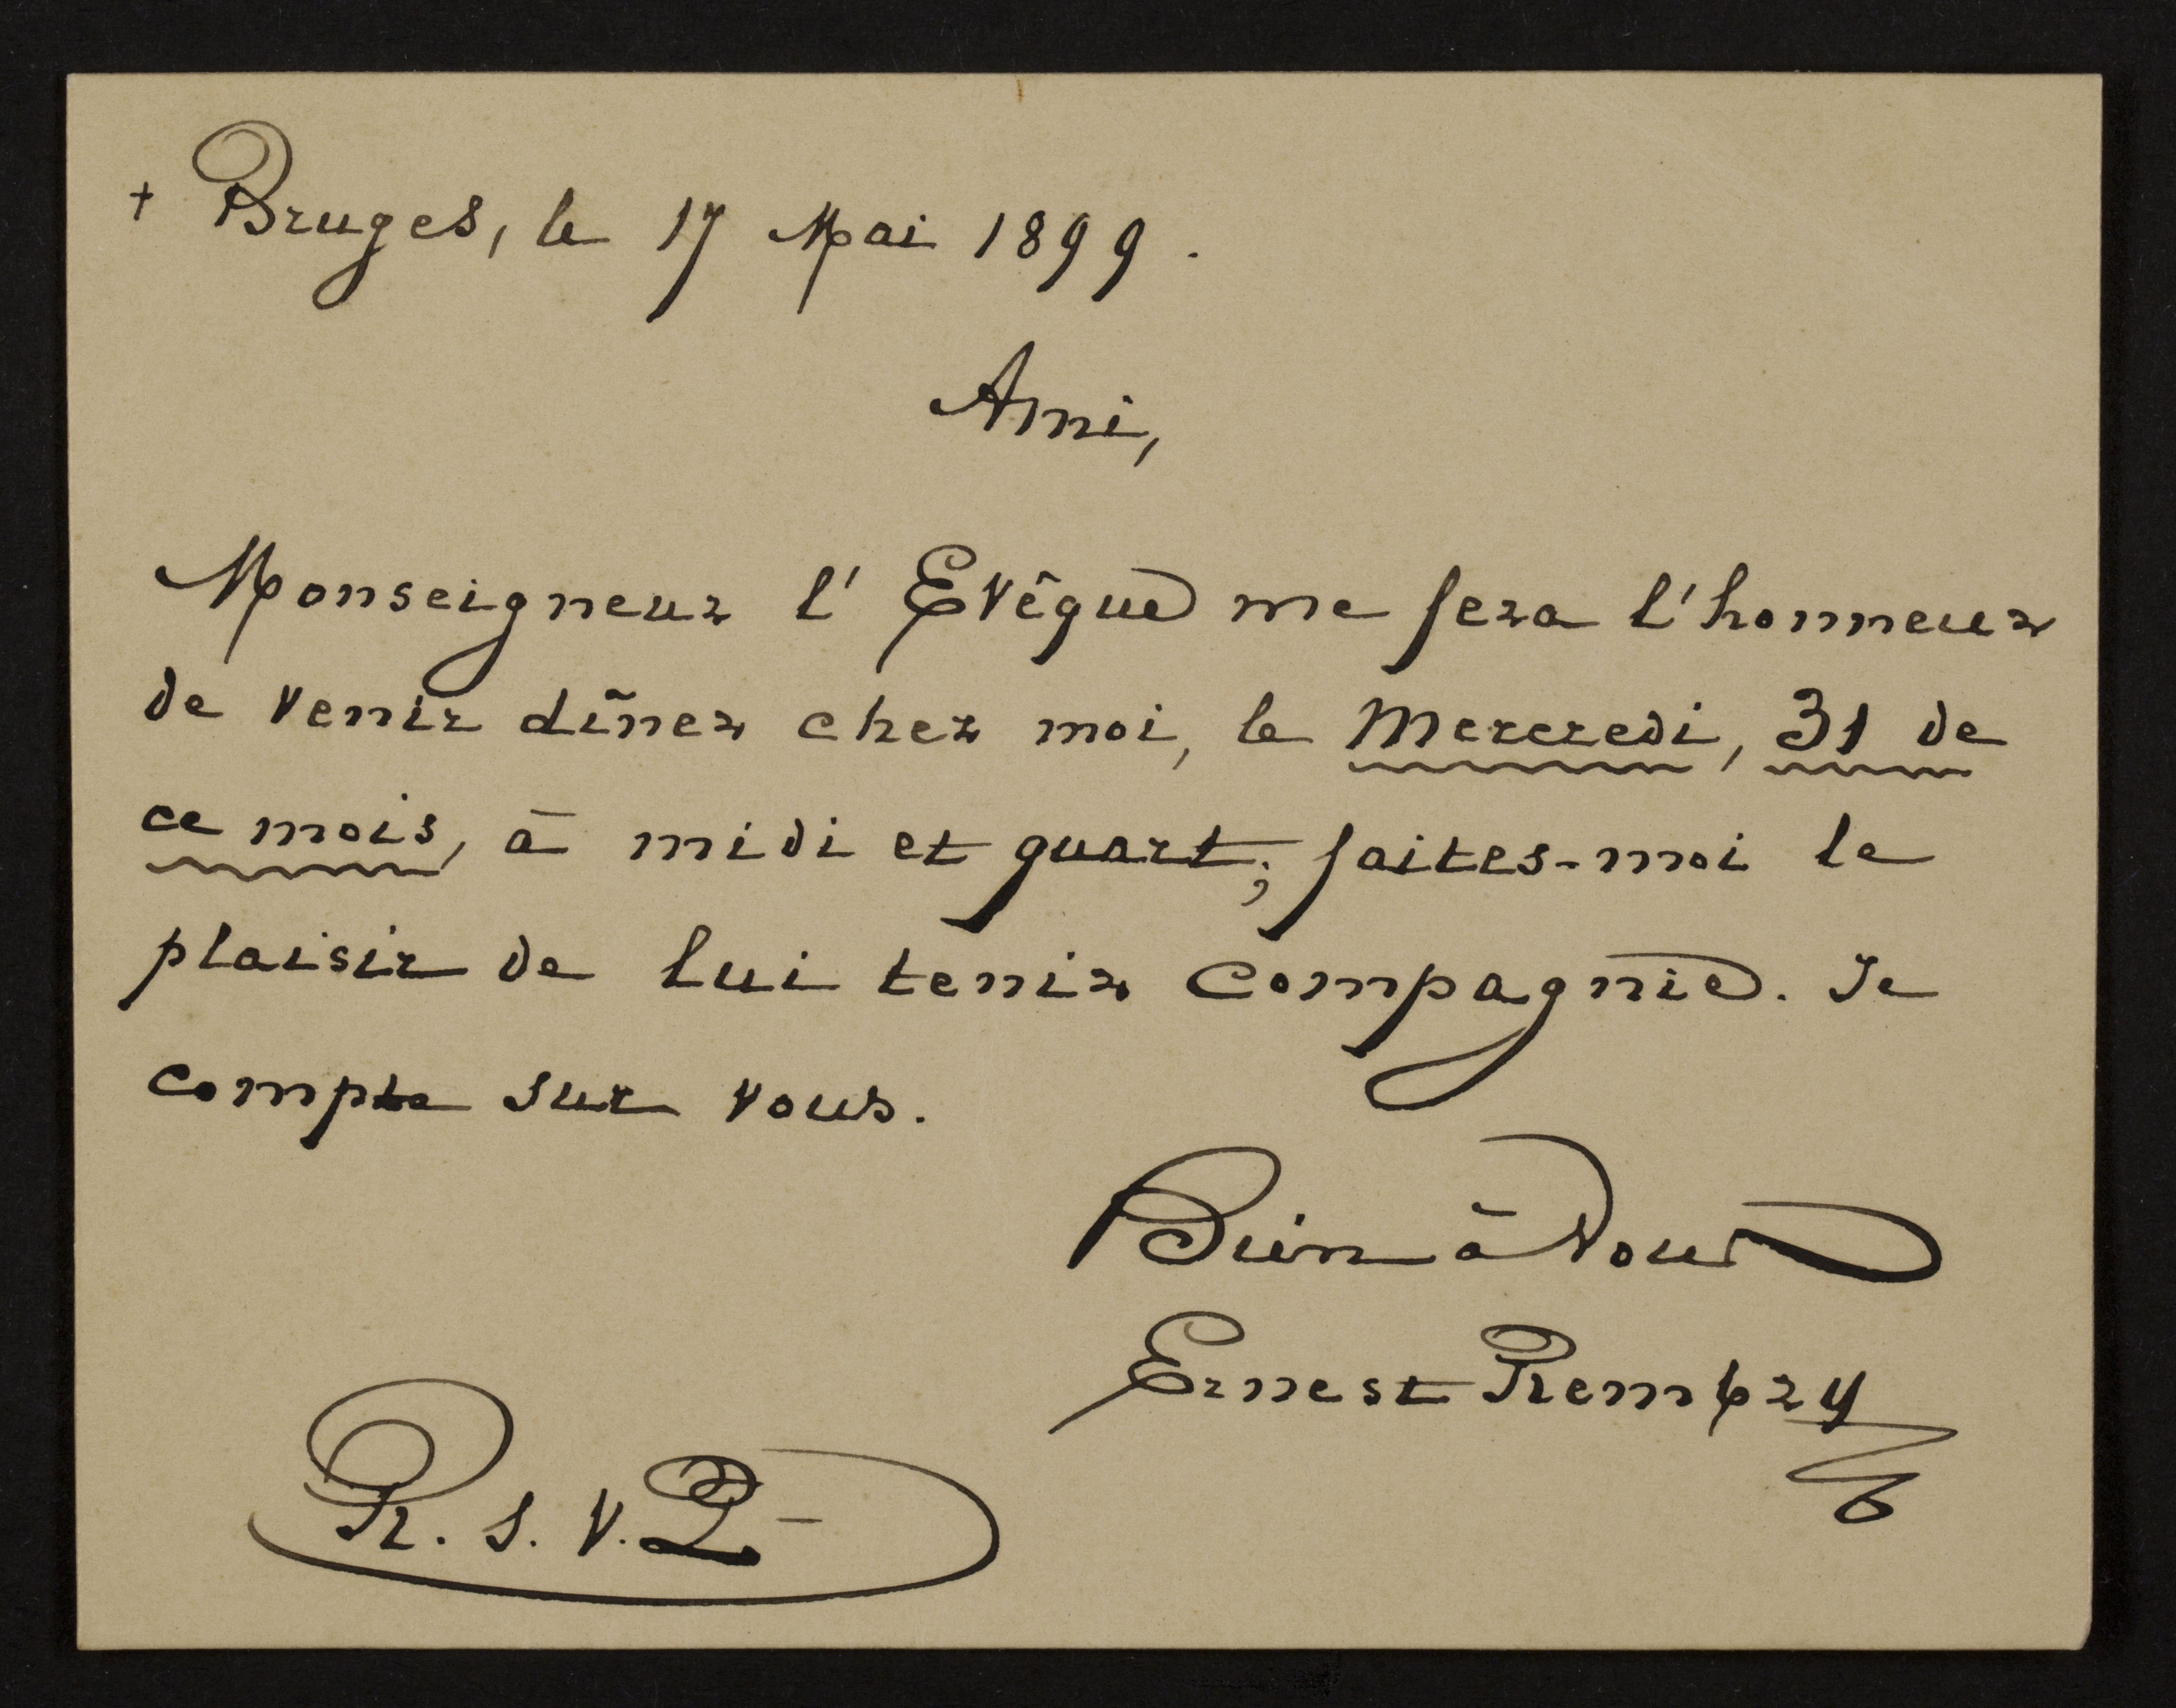 + Bruges, le 17 Mai 1899.
Ami,
Monseigneur l'Evêque me fera l'honneur
de venir dîner chez moi, le Mercredi, 31 de
ce mois, à midi et quart; faites-moi le
plaisir de lui tenir compagnie. Je
compte sur vous.
Bien à Vous
Ernest Rembry
R. S. V. P-